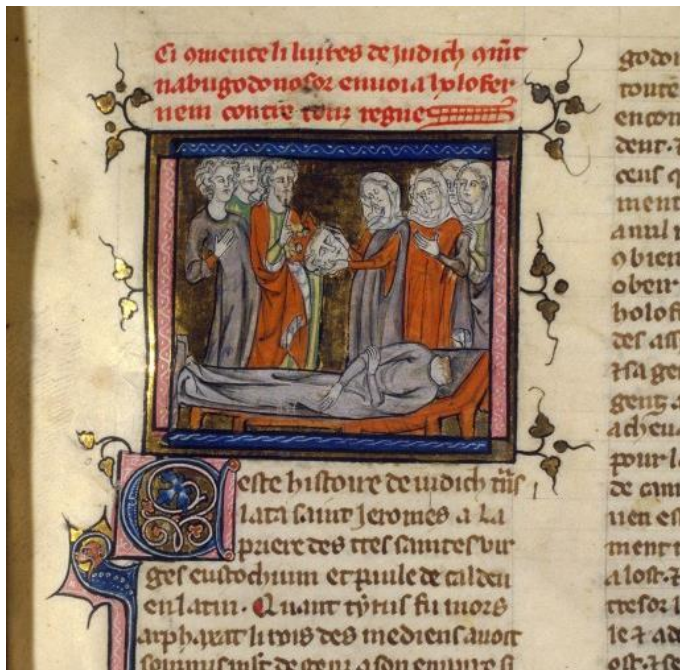 Ci cmence li livres de judich cmt
nabugodonosor envoia holofer
nem contre touz regne
Ceste histoire de iudich trns
lata saint Jeromes a la
priere des .ii. saintes vir
ges eustochium et paule de caldeu
en latin. Quant tyrus fu mors
arphaxat li rois des mediens avoit
sousmis mlt de genz a son empire
godon
toute
encon
deur.
ceus q
ment
a nul
obien
obeir
holof
des ass
sa gen
gent a
acheva
pour l
de
uen es
ment
a lost.
tresor
le ad